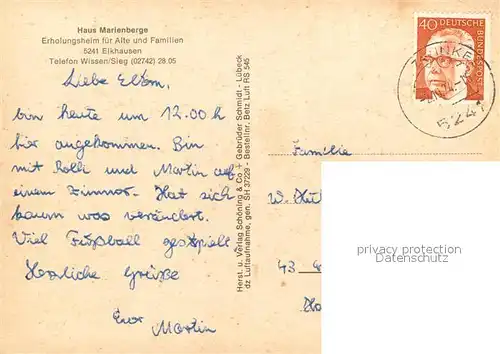 Haus Marienberge
Erholungsheim für Alte und Familien
5241 Elkhausen
Telefon Wissen/Sieg (02742) 28.05
Liebe Eltern,
bin heute um 12.00 h
hier angekommen. Bin
mit Rolli und Martin auf
einem Zimmer. Hat sich
kaum was verändert.
Viel Fußball gespielt
Herzliche Grüße
Euer
Martin
Herst. u. Verlag Schöning & Co + Gebrüder Schmidt - Lübeck
dz Luftaufnahme, gen. SH 37229 - Bestellnr. Betz Luft RS 545
40 DEUTSCHE
BUNDESPOST
5241
Familie
W.
43
privacy protection